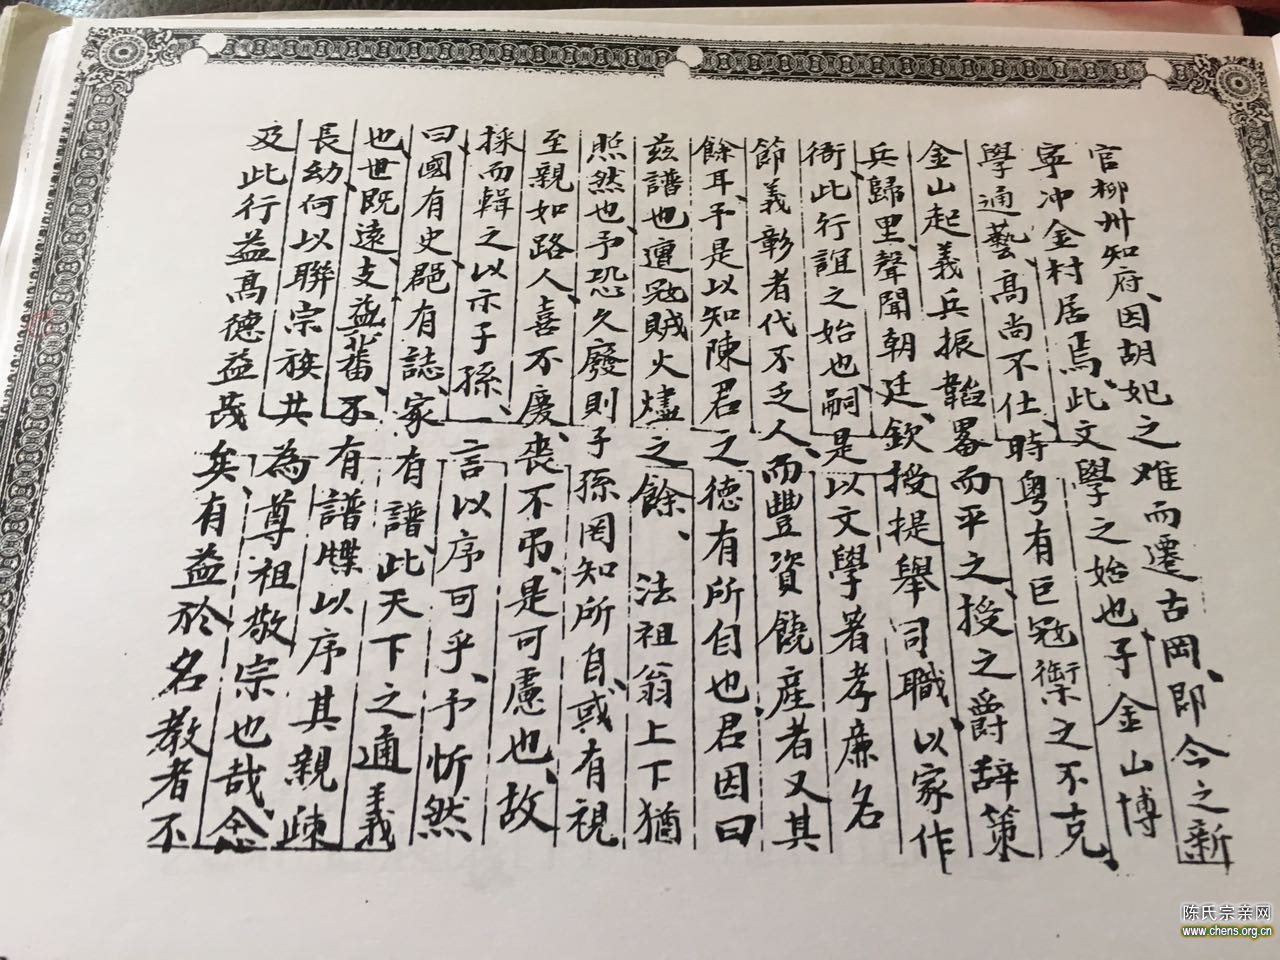 官柳州知府、因胡妃之难而遷古岡、即今之新
寧冲金村居焉、此文學之始也子金山博
學通藝高尚不仕、時粤有巨冦衝之不克、
金山起義兵振韜畧而平之、授之爵辞策
兵歸里、聲聞朝廷、欽授提舉司職、以家作
衙、此行誼之始也、嗣是以文學著孝廉名
節義彰者代不乏人、而豐資饒産者又其
餘耳、予是以知陳君之德有所自也、君因曰
兹譜也遭冦賊火燼之餘、法祖翁上下猶
照然也、予恐久廢則子孫罔知所自、或有視
至親如路人、喜不慶、喪不弔、是可慮也、故
採而輯之以示子孫、一言以序可乎、予忻然
曰、國有史、郡有誌、家有譜、此天下之通義
也、世既遠、支益蕃、不有譜牒以序其親疎
長幼、何以聯宗族共為尊祖敬宗也哉、念
及此行益高德益茂矣、有益於名教者不
陈氏宗亲网
www.chens.org.cn